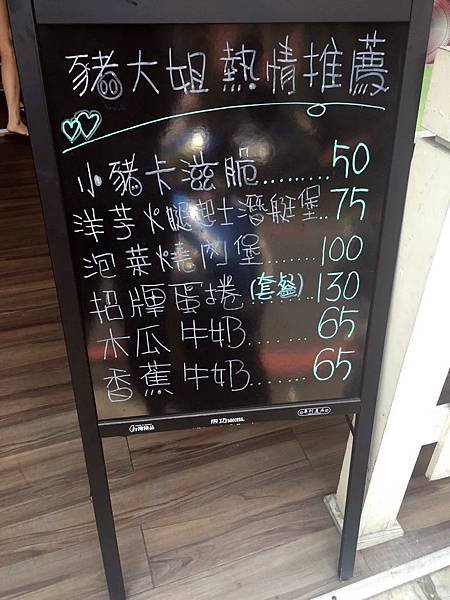 豬大姐熱情推薦
小豬卡滋脆.........50
洋芋火腿起士潛艇堡..75
泡菜燒肉堡.......100
招牌蛋捲(套餐)....130
木瓜牛奶......65
香蕉牛奶.......65
成功 success.